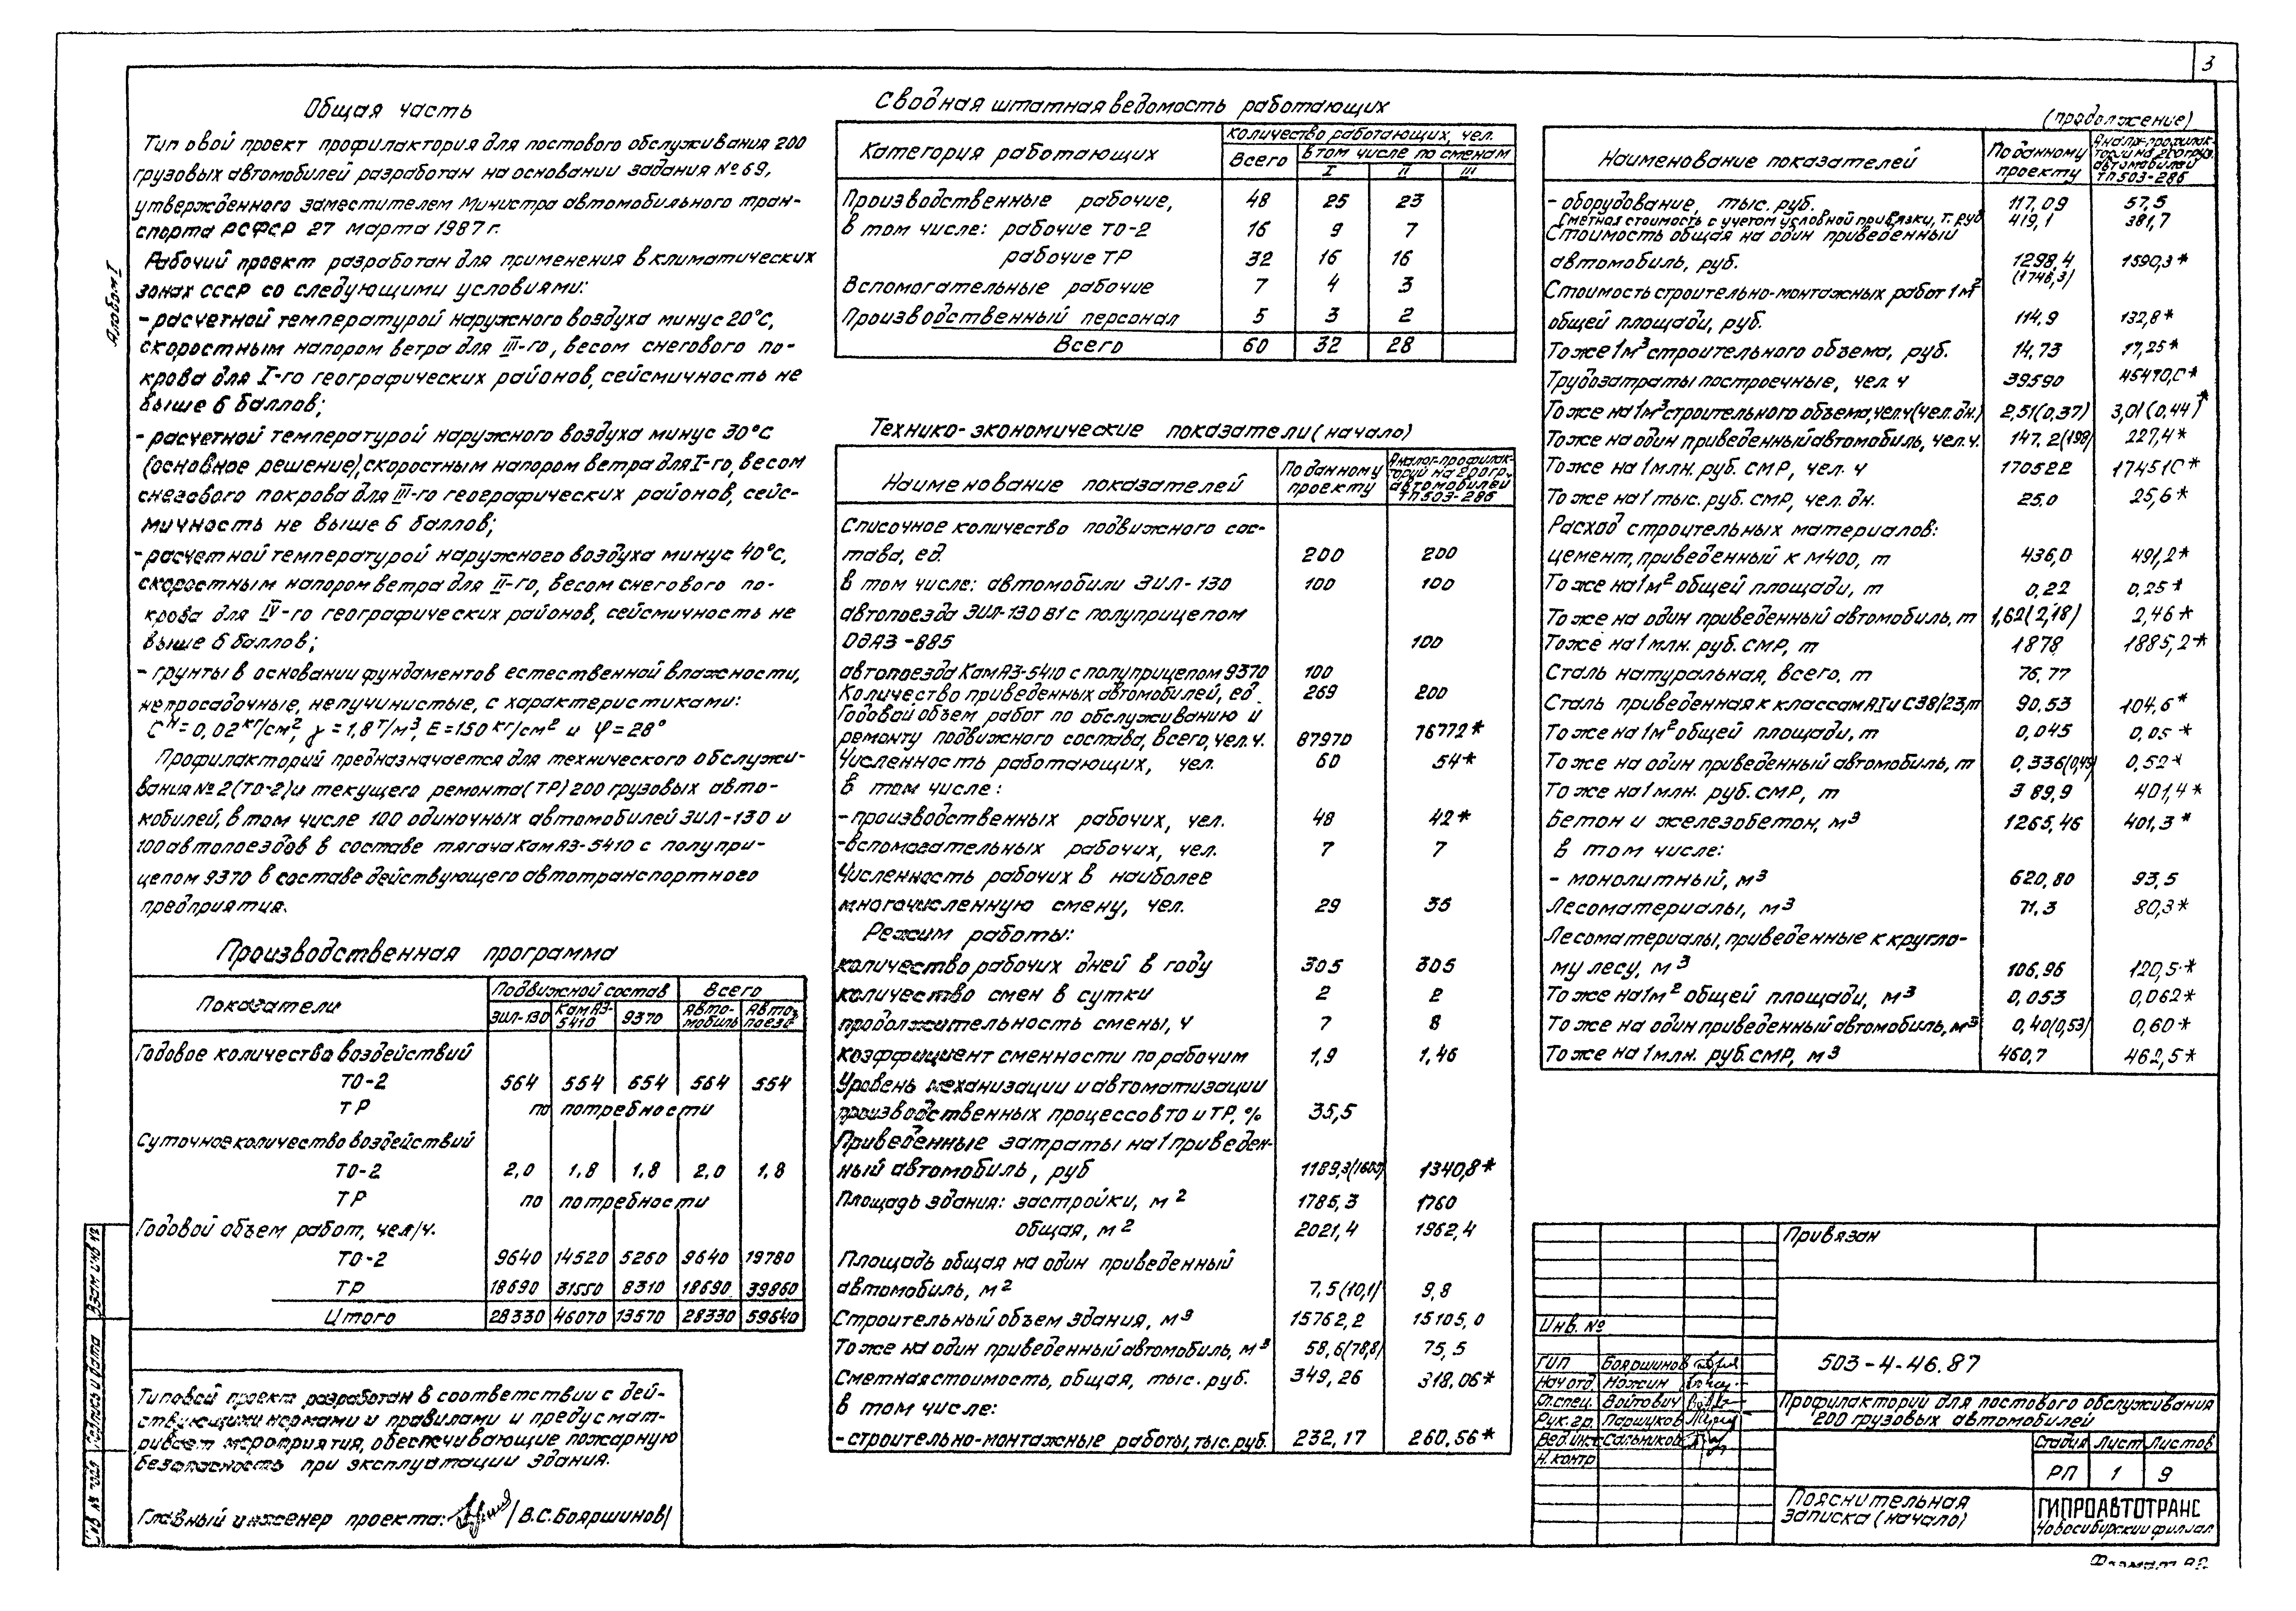 3
Альбом I
Общая часть
Типовой проект профилактория для постового обслуживания 200
грузовых автомобилей разработан на основании задания №69,
утвержденного заместителем Министра автомобильного тран-
спорта РСФСР 27 марта 1987г.
Рабочий проект разработан для применения в климатических
зонах СССР со следующими условиями:
- расчетной температурой наружного воздуха минус 20°С,
скоростным напором ветра для III-го, весом снегового по-
крова для I-го географических районов, сейсмичность не
выше 6 баллов;
- расчетной температурой наружного воздуха минус 30°С
(основное решение), скоростным напором ветра для I-го, весом
снегового покрова для III-го географических районов, сейс-
мичность не выше 6 баллов;
- расчетной температурой наружного воздуха минус 40°С,
скоростным напором ветра для II-го, весом снегового по-
крова для IV-го географических районов, сейсмичность не
выше 6 баллов;
- грунты в основании фундаментов естественной влажности,
непросадочные, непучинистые, с характеристиками:
Cᴴ=0,02 кг/см², γ=1,8 т/м³, E=150 кг/см² и φ=28°
Профилакторий предназначается для технического обслужи-
вания №2 (ТО-2) и текущего ремонта (ТР) 200 грузовых авто-
мобилей, в том числе 100 одиночных автомобилей ЗИЛ-130 и
100 автопоездов в составе тягача КамАЗ-5410 с полупри-
цепом 9370 в составе действующего автотранспортного
предприятия.
Производственная программа
Показатели | Подвижной состав | Всего
ЗИЛ-130 | КамАЗ-5410 | 9370 | Авто-мобиль | Автопоезд
Годовое количество воздействий
ТО-2 564 554 554 564 554
ТР по потребности
Суточное количество воздействий
ТО-2 2,0 1,8 1,8 2,0 1,8
ТР по потребности
Годовой объем работ, чел/ч.
ТО-2 9640 14520 5260 9640 19780
ТР 18690 31550 8310 18690 39860
Итого 28330 46070 13570 28330 59640
Типовой проект разработан в соответствии с дей-
ствующими нормами и правилами и предусмат-
ривает мероприятия, обеспечивающие пожарную
безопасность при эксплуатации здания.
Главный инженер проекта: /В.С.Бояршинов/
Сводная штатная ведомость работающих
Категория работающих | Количество работающих, чел.
Всего | в том числе по сменам
I II III
Производственные рабочие, 48 25 23
в том числе: рабочие ТО-2 16 9 7
рабочие ТР 32 16 16
Вспомогательные рабочие 7 4 3
Производственный персонал 5 3 2
Всего 60 32 28
Технико-экономические показатели (начало)
Наименование показателей | По данному проекту | Аналог-профилакторий на 200 гр. автомобилей ТП503-286
Списочное количество подвижного сос-
тава, ед. 200 200
в том числе: автомобили ЗИЛ-130 100 100
автопоезда ЗИЛ-130 В1 с полуприцепом
ОдАЗ-885 100
автопоезда КамАЗ-5410 с полуприцепом 9370 100
Количество приведенных автомобилей, ед. 269 200
Годовой объем работ по обслуживанию и
ремонту подвижного состава, всего, чел.ч. 87970 76772*
Численность работающих, чел. 60 54*
в том числе:
- производственных рабочих, чел. 48 42*
- вспомогательных рабочих, чел. 7 7
Численность рабочих в наиболее
многочисленную смену, чел. 29 36
Режим работы:
количество рабочих дней в году 305 305
количество смен в сутки 2 2
продолжительность смены, ч 7 8
коэффициент сменности по рабочим 1,9 1,46
Уровень механизации и автоматизации
производственных процессов ТО и ТР, % 35,5
Приведенные затраты на 1 приведен-
ный автомобиль, руб 1340,8*
Площадь здания: застройки, м² 1785,3 1760
общая, м² 2021,4 1962,4
Площадь общая на один приведенный
автомобиль, м² 7,5(10,1) 9,8
Строительный объем здания, м³ 15762,2 15105,0
То же на один приведенный автомобиль, м³ 58,6(78,8) 75,5
Сметная стоимость, общая, тыс. руб. 349,26 318,06*
в том числе:
- строительно-монтажные работы, тыс. руб. 232,17 260,56*
(продолжение)
Наименование показателей | По данному проекту | Аналог-профилакторий на 200 груз. автомобилей ТП503-286
- оборудование, тыс. руб. 117,09 57,5
Сметная стоимость с учетом условной привязки, т. руб 419,1 381,7
Стоимость общая на один приведенный
автомобиль, руб. 1298,4 (1746,3) 1590,3*
Стоимость строительно-монтажных работ 1м²
общей площади, руб. 114,9 132,8*
То же 1м³ строительного объема, руб. 14,73 17,25*
Трудозатраты построечные, чел. ч 39590 45470,0*
То же на 1м³ строительного объема, чел.ч (чел.дн.) 2,51(0,37) 3,01(0,44)*
То же на один приведенный автомобиль, чел.ч. 147,2(198) 227,4*
То же на 1 млн. руб. СМР, чел. ч 170522 174510*
То же на 1 тыс. руб. СМР, чел. дн. 25.0 25,6*
Расход строительных материалов:
цемент, приведенный к М400, т 436,0 491,2*
То же на 1м² общей площади, т 0,22 0,25*
То же на один приведенный автомобиль, т 1,62(2,18) 2,46*
То же на 1 млн. руб. СМР, т 1878 1885,2*
Сталь натуральная, всего, т 76,77
Сталь приведенная к классам АI и С38/23, т 90.53 104,6*
То же на 1м² общей площади, т 0,045 0,05*
То же на один приведенный автомобиль, т 0,336(0,45) 0,52*
То же на 1 млн. руб. СМР, т 389,9 401,4*
Бетон и железобетон, м³ 1265,46 401,3*
в том числе:
- монолитный, м³ 620,80 93,5
Лесоматериалы, м³ 71,3 80,3*
Лесоматериалы, приведенные к кругло-
му лесу, м³ 106,96 120,5*
То же на 1м² общей площади, м³ 0,053 0,062*
То же на один приведенный автомобиль, м³ 0,40(0,53) 0,60*
То же на 1 млн. руб. СМР, м³ 460,7 462,5*
Привязан
Инв. №
503-4-46.87
ГИП Бояршинов
Нач.отд. Ножкин
Гл.спец. Войтович
Рук.гр. Паршуков
Вед.инж. Сальников
Н. контр
Профилакторий для постового обслуживания
200 грузовых автомобилей
Стадия Лист Листов
РП 1 9
Пояснительная
записка (начало)
ГИПРОАВТОТРАНС
Новосибирский филиал
Взам инв №
Подпись и дата
Инв. № подл